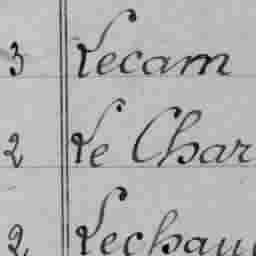 3 Lecam
2 Le Char
2 Lechau